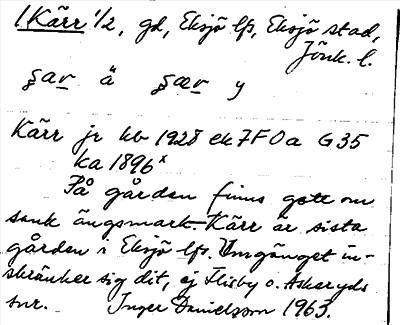 1 Kärr 1/2, gd, Eksjö lfs, Eksjö stad,
Jönk. l.
ʂar ä ʂær y
Kärr jr kb 1928 ek 7F0a G35
ka 1896ˣ
På gården finns gott om
sank ängsmark. Kärr är sista
gården i Eksjö lfs. Umgänget in-
skränker sig dit, ej Flisby o. Askeryds
snr. Inger Danielsson 1963.